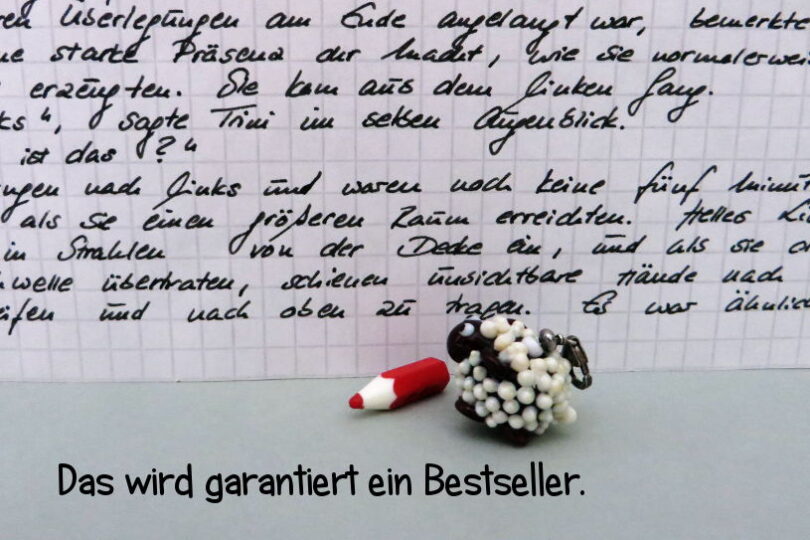 ren Überlegungen am Ende angelangt war, bemerkte
ne starke Präsenz der Macht, wie sie normalerwei
erzeugten. Sie kam aus dem linken Gang.
ks", sagte Trini im selben Augenblick.
ist das?"
ngen nach links und waren noch keine fünf Minut
als sie einen größeren Raum erreichten. Helles Li
in Strahlen von der Decke ein, und als sie
hwelle übertraten, schienen unsichtbare Hände nach
eifen und nach oben zu tragen. Es war ähnlic
Das wird garantiert ein Bestseller.